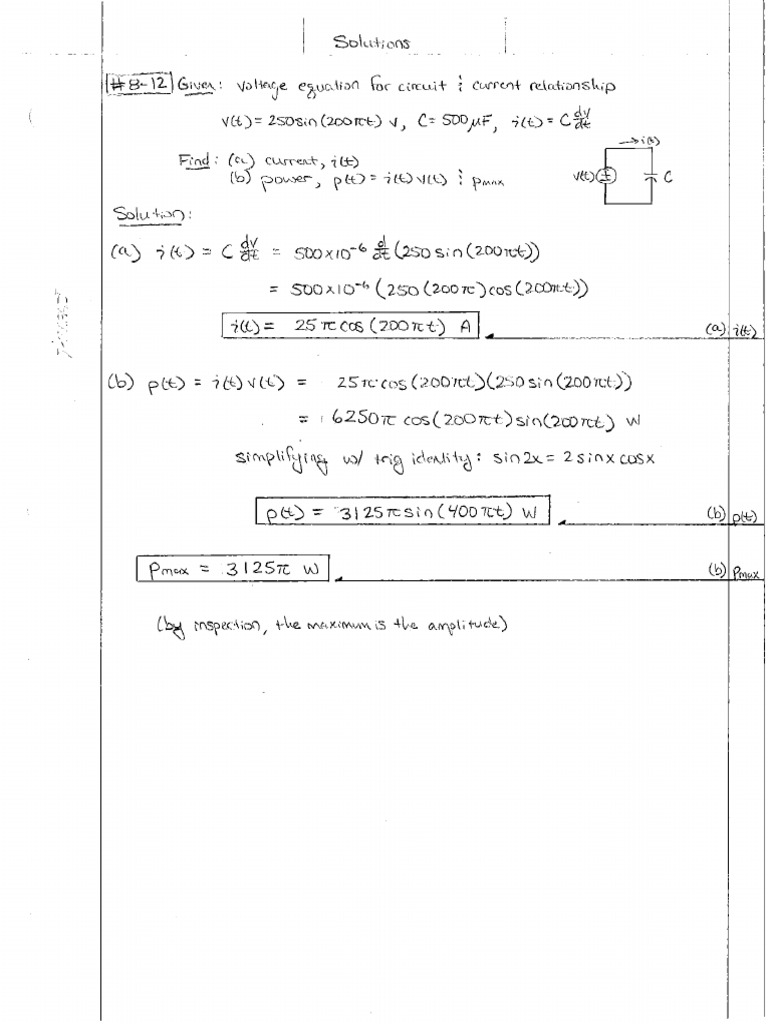 Solutions
#8-12 Given: voltage equation for circuit & current relationship
v(t) = 250sin(200πt) V, C = 500μF, i(t) = C dv/dt
Find: (a) current, i(t)
(b) power, p(t) = i(t) v(t) & pmax
i(t)
v(t) C
Solution:
(a) i(t) = C dv/dt = 500x10⁻⁶ d/dt (250 sin(200πt))
= 500x10⁻⁶ (250(200π)cos(200πt))
i(t) = 25π cos(200πt) A (a) i(t)
(b) p(t) = i(t) v(t) = 25π cos(200πt)(250 sin(200πt))
= 6250π cos(200πt) sin(200πt) W
simplifying w/ trig identity: sin2x = 2 sinx cosx
p(t) = 3125π sin(400πt) W (b) p(t)
Pmax = 3125π W (b) Pmax
(by inspection, the maximum is the amplitude)